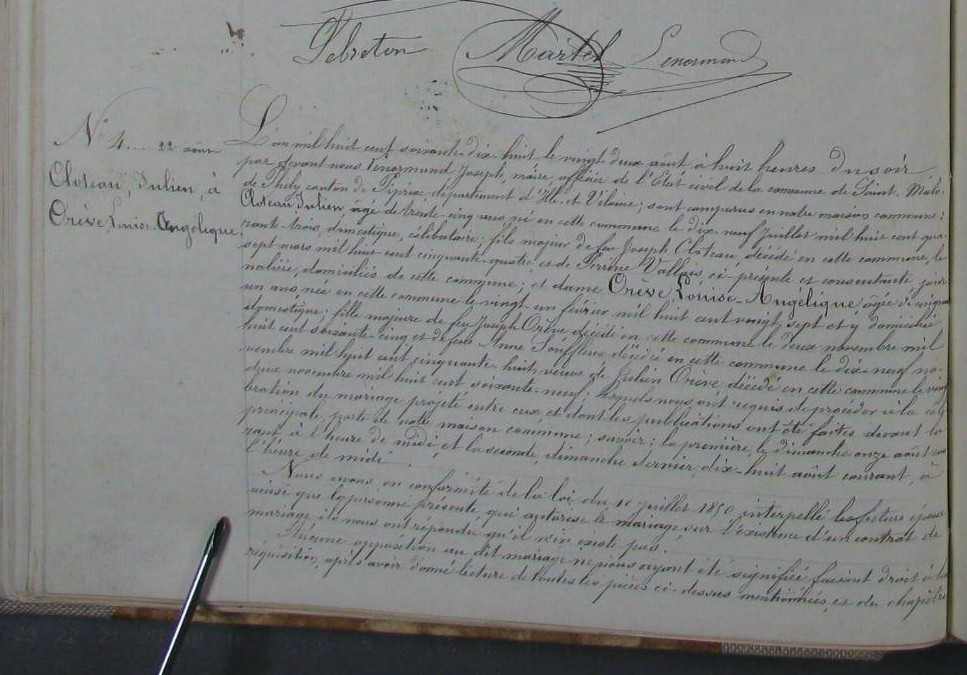 Lebreton Martel Lenormand
N° 4... 22 août
Cloteau Julien, à
Orève Louise Angélique.
L'an mil huit cent soixante-dix-huit le vingt deux août à huit heures du soir
par devant nous Lenormand Joseph, maire officier de l'État civil de la commune de Saint. Malo-
de Phily canton de Pipriac, département d'Ille-et-Vilaine; sont comparus en notre maison commune:
Cloteau Julien âgé de trente-cinq ans, né en cette commune le dix neuf Juillet mil huit cent qua-
rante-trois, domestique, célibataire; fils majeur de feu Joseph Cloteau, décédé en cette commune, le
sept mars mil huit cent cinquante-quatre et de Perrine Vallais ci-présente et consentante, jour
nalière, domiciliés de cette commune; et dame Orève Louise-Angélique âgée de cinquante
un ans, née en cette commune le vingt un février mil huit cent vingt sept et y domiciliée
domestique; fille majeure de feu Joseph Orève décédé en cette commune le deux novembre mil
huit cent soixante-cinq et de feue Anne décédée en cette commune le dix-neuf no-
vembre mil huit cent cinquante-huit; veuve de Julien Orève décédé en cette commune le vingt
deux novembre mil huit cent soixante-neuf; lesquels nous ont requis de procéder à la célé
bration du mariage projeté entre eux et dont les publications ont été faites devant la
principale porte de notre maison commune; savoir: la première, le dimanche onze août cou
rant à l'heure de midi et la seconde, dimanche dernier, dix-huit août courant, à
l'heure de midi.
Nous avons, en conformité de la loi du 10 juillet 1850, interpellé les futurs époux
ainsi que la personne présente, qui autorise le mariage, sur l'existence d'un contrat de
mariage ils nous ont répondu qu'il n'en existe pas.
Aucune opposition au dit mariage ne nous ayant été signifiée faisant droit à leur
réquisition, après avoir donné lecture de toutes les pièces ci-dessus mentionnées, et du chapitre